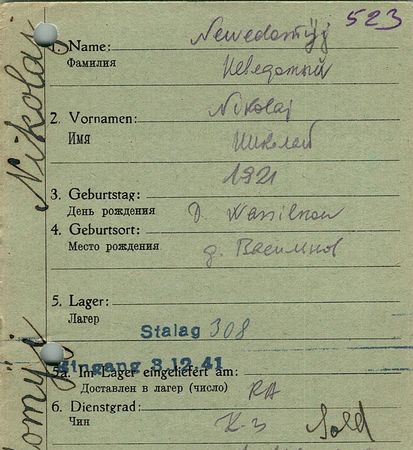 523
1. Name: Newedomyj
Фамилия Неведомый
2. Vornamen: Nikolaj
Имя Николай
1921
3. Geburtstag:
День рождения D. Wassilkow
4. Geburtsort:
Место рождения д.
5. Lager:
Лагер
Stalag 308
Eingang 3.12.41
5a. Im Lager eingeliefert am:
Доставлен в лагер (число) RA
6. Dienstgrad:
Чин К-з Sold
Nikolaj